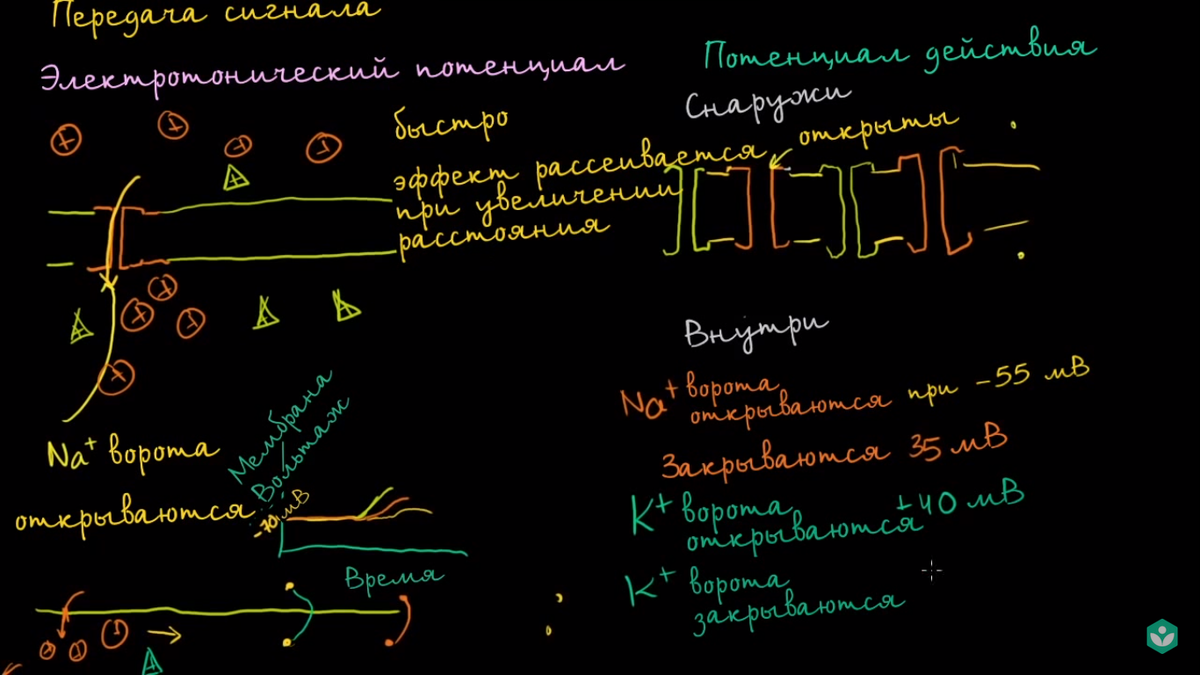 Передача сигнала
Электротонический потенциал
быстро
эффект рассеивается
при увеличении
расстояния
Na+ ворота
открываются
Мембрана
Вольтаж
-70 мВ
Время
Потенциал действия
Снаружи
открыты
Внутри
Na+ ворота
открываются при -55 мВ
Закрываются 35 мВ
K+ ворота
открываются ±40 мВ
K+ ворота
закрываются